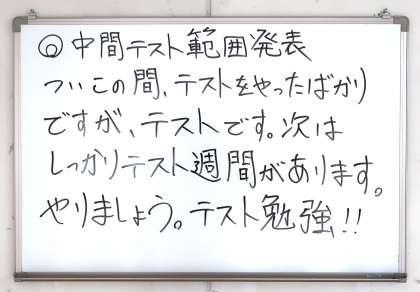 ◎中間テスト範囲発表
ついこの間、テストをやったばかり
ですが、テストです。次は
しっかりテスト週間があります。
やりましょう。テスト勉強!!